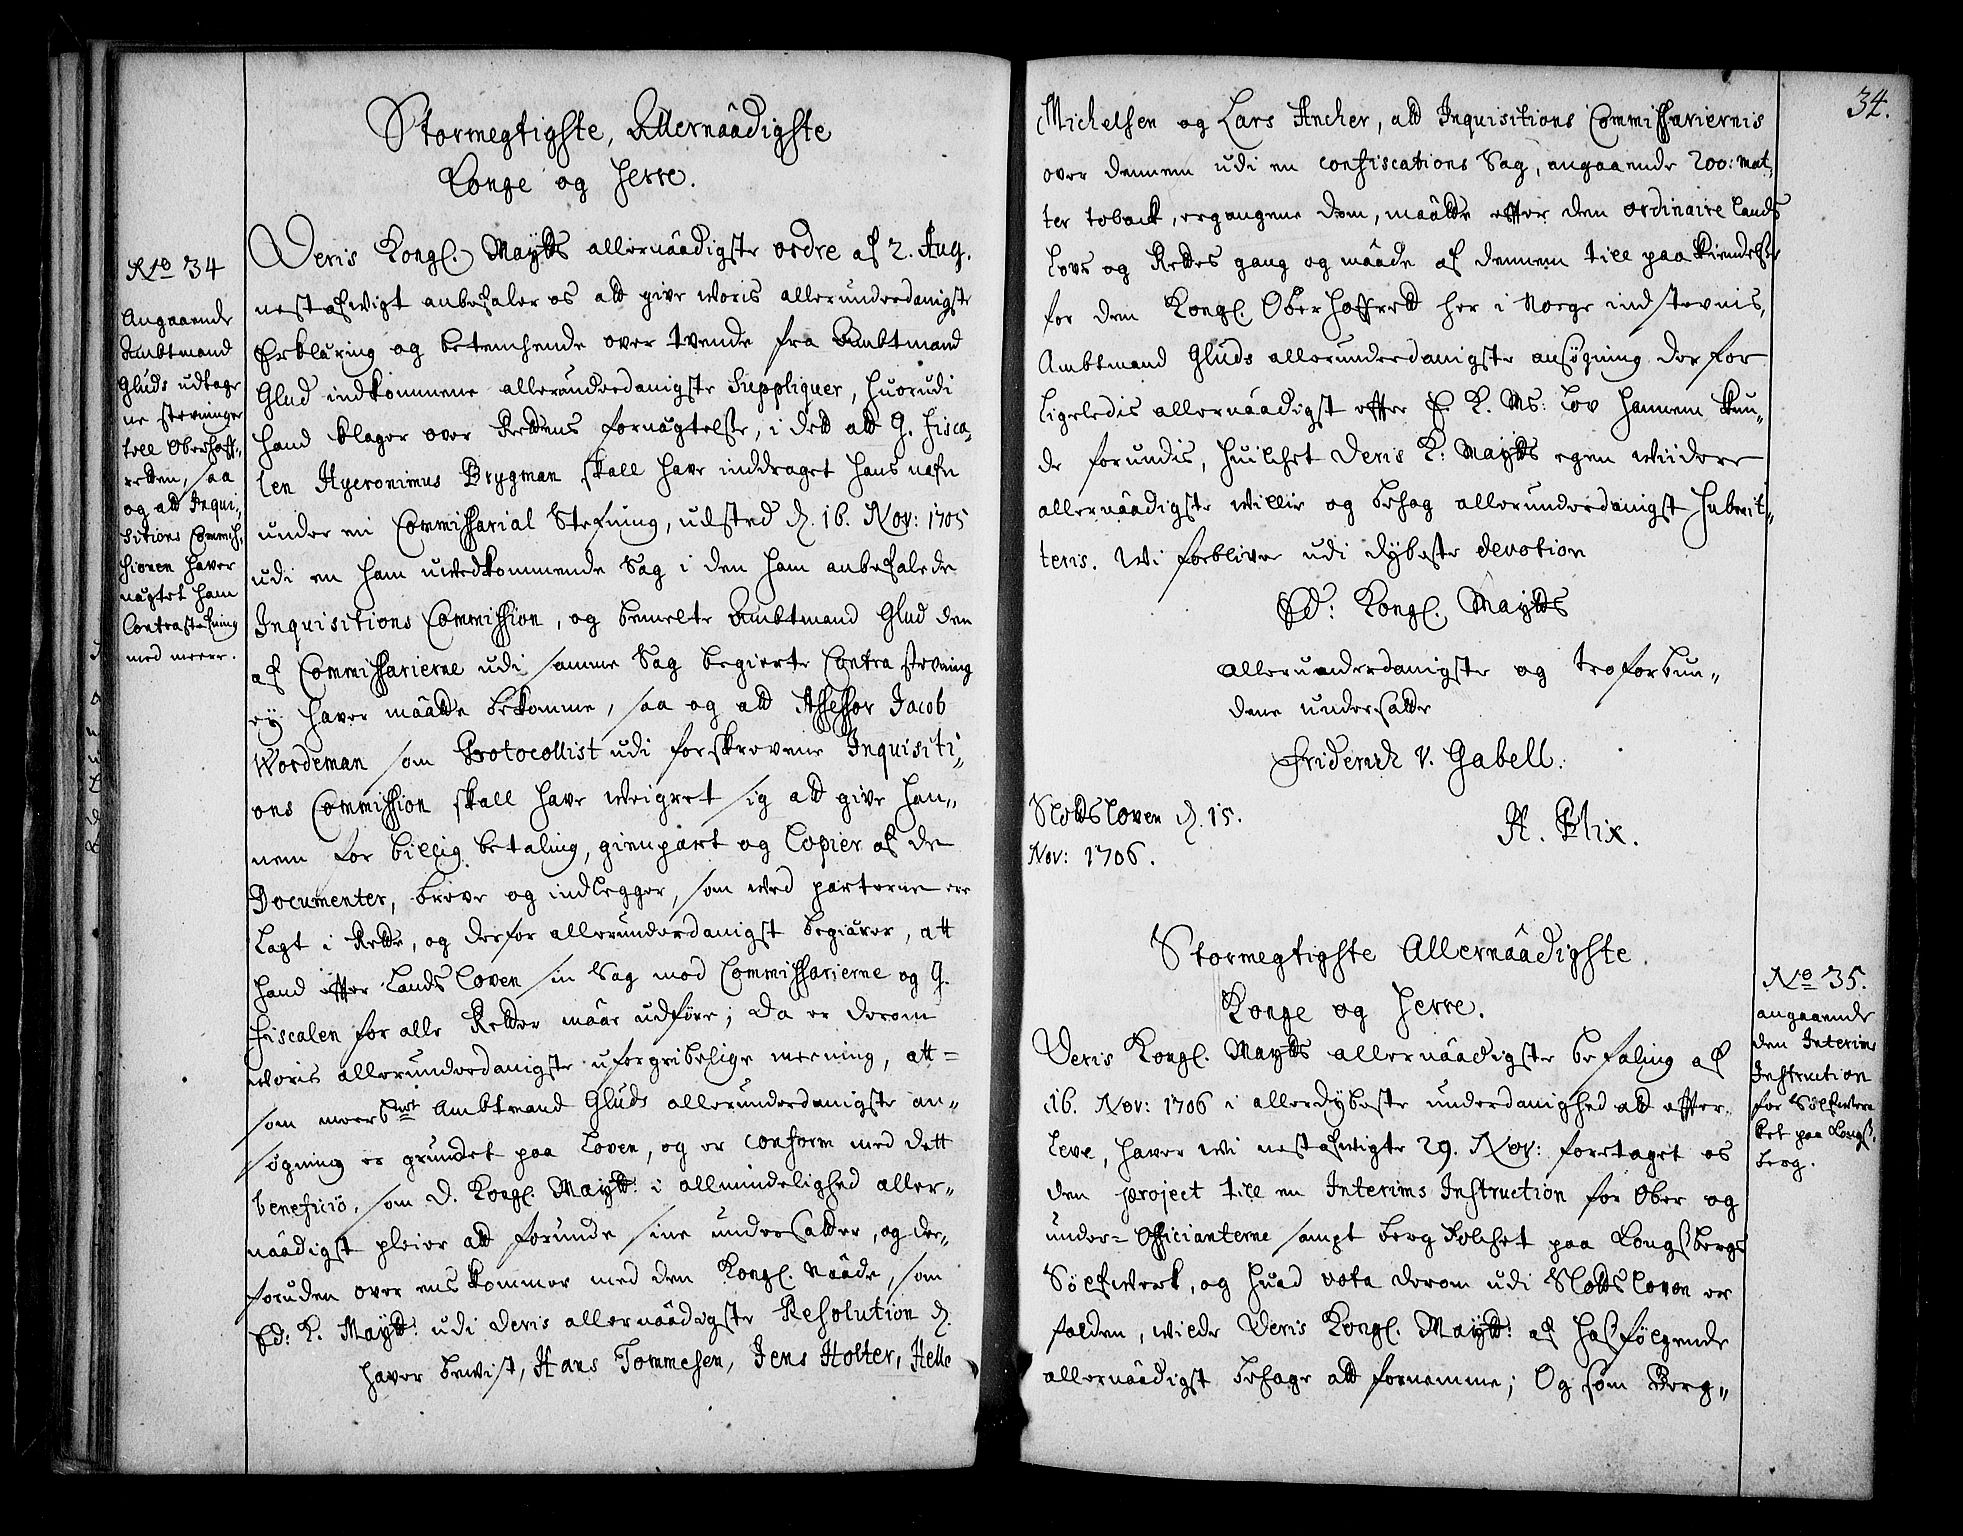 Stormegtigste, Allernaadigste
Konge og Herre.
No 34
Angaaende
Ambtmand
Gluds udtage
ne stevninger
till Oberhoff,,
retten, saa
og att Inqui,,
sitions Commis,,
sionen haver
nägtet ham
Contrastefning
med meere.
Deris Kongl. Maytts allernaadigste ordre af 2. Aug.
nest afvigt anbefaler os att give voris allerunderdanigste
Erkläring og betenchende over tvende fra Ambtmand
Glud indkommene allerunderdanigste Suppliquer, huorudi
hand klager over Rettens fornägtelse, i dett att G. Fisca,,
len Hyeronimus Brygman skall have inddraget hans nafn
under en Commissarial Stefning, udsted d. 16. Nov: 1705
udi en ham uvedkommende Sag i den ham anbefalede
Inquisitions Commission, og bemelte Ambtmand Glud den
af Commissarierne udi samme Sag begierte Contra stevning
ey haver maatte bekomme, saa og att Assessor Jacob
Wordeman som Protocollist udi forskrevene Inquisiti,,
ons Commission skall have weigret sig att give han,,
nem for billig betaling, gienpart og Copier af de
Documenter, breve og indlegger, som ved parterne ere
lagt i Rette, og derfor allerunderdanigst begiärer, att
hand effter Lands Loven sin Sag mod Commissarierne og G.
Fiscalen for alle Retter maae udføre; Da er derom
voris allerunderdanigste uforgribelige meening, att=
som meerbmt Ambtmand Gluds allerunderdanigste an,,
søgning er grundet paa Loven, og er conform med dett
beneficio, som D. Kongl. Maytt: i allmindelighed aller,,
naadigst pleier att forunde sine undersatter, og der,,
foruden over ens kommer med den Kongl. naade, som
Ed: K. Maytt: udi deris allernaadigste Resolution d.
haver bevist, Hans Tommesen, Jens Holter, Helle
34.
Michelsen og Lars Ancher, att Inquisitions Commissariernis
over dennem udi en confiscations Sag, angaaende 200: mat,,
ter toback, ergangene dom, maatte effter den ordinaire Lands
Lovs og Rettes gang og maade af dennem till paakiendelse
for den Kongl. Oberhoffrett her i Norge indstevnis,
Ambtmand Gluds allerunderdanigste ansøgning derfor
ligeledis allernaadigst effter E. K. Ms: Lov hannem kun,,
de forundis, huilchet Deris K: Maytts egen viidere
allernaadigste villie og behag allerunderdanigst submit,,
teris. Wi forblive udi dybeste devotion
Ed: Kongl. Maytts
allerunderdanigste og troforbun,,
dene undersatte
Friderich V. Gabell.
Slotts loven d. 15.
Nov: 1706.
H. Blix.
Stormegtigste Allernaadigste
Konge og Herre.
No 35.
angaaende
den Interims
Instruction
for Sølfver
ket paa Kongs,,
berg.
Deris Kongl. Maytts allernaadigste befaling af
16. Nov: 1706 i allerdybeste underdanighed att effter,,
leve, haver vi nestafvigte 29. Nov: foretaget os
den project till en Interims Instruction for Ober og
under= Officianterne sampt berg folchet paa Kongsbergs
Sølfverk, og huad vota derom udi Slotts loven er
falden, vilde Deris Kongl. Maytt: af hosfølgende
allernaadigst behage att fornemme; Og som Berg,,